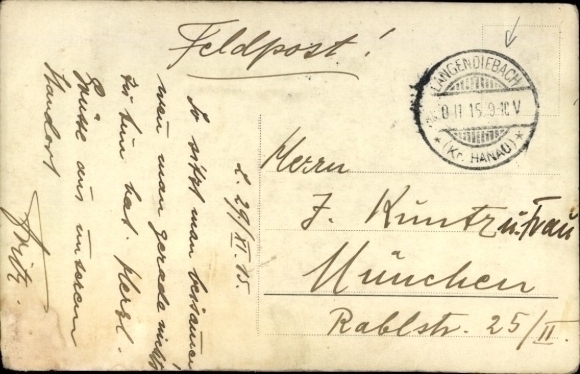 Feldpost!
LANGENDIEBACH
11 15 9-10 V
* (Kr. HANAU) *
L. 29/XI. 15.
So sitzt man beisammen
wen man gerade nichts
zu tun hat. Herzl.
Grüße aus unserem
Standort
Fritz.
Herrn
J. Kuntz u. Frau
München
Rablstr. 25/II.